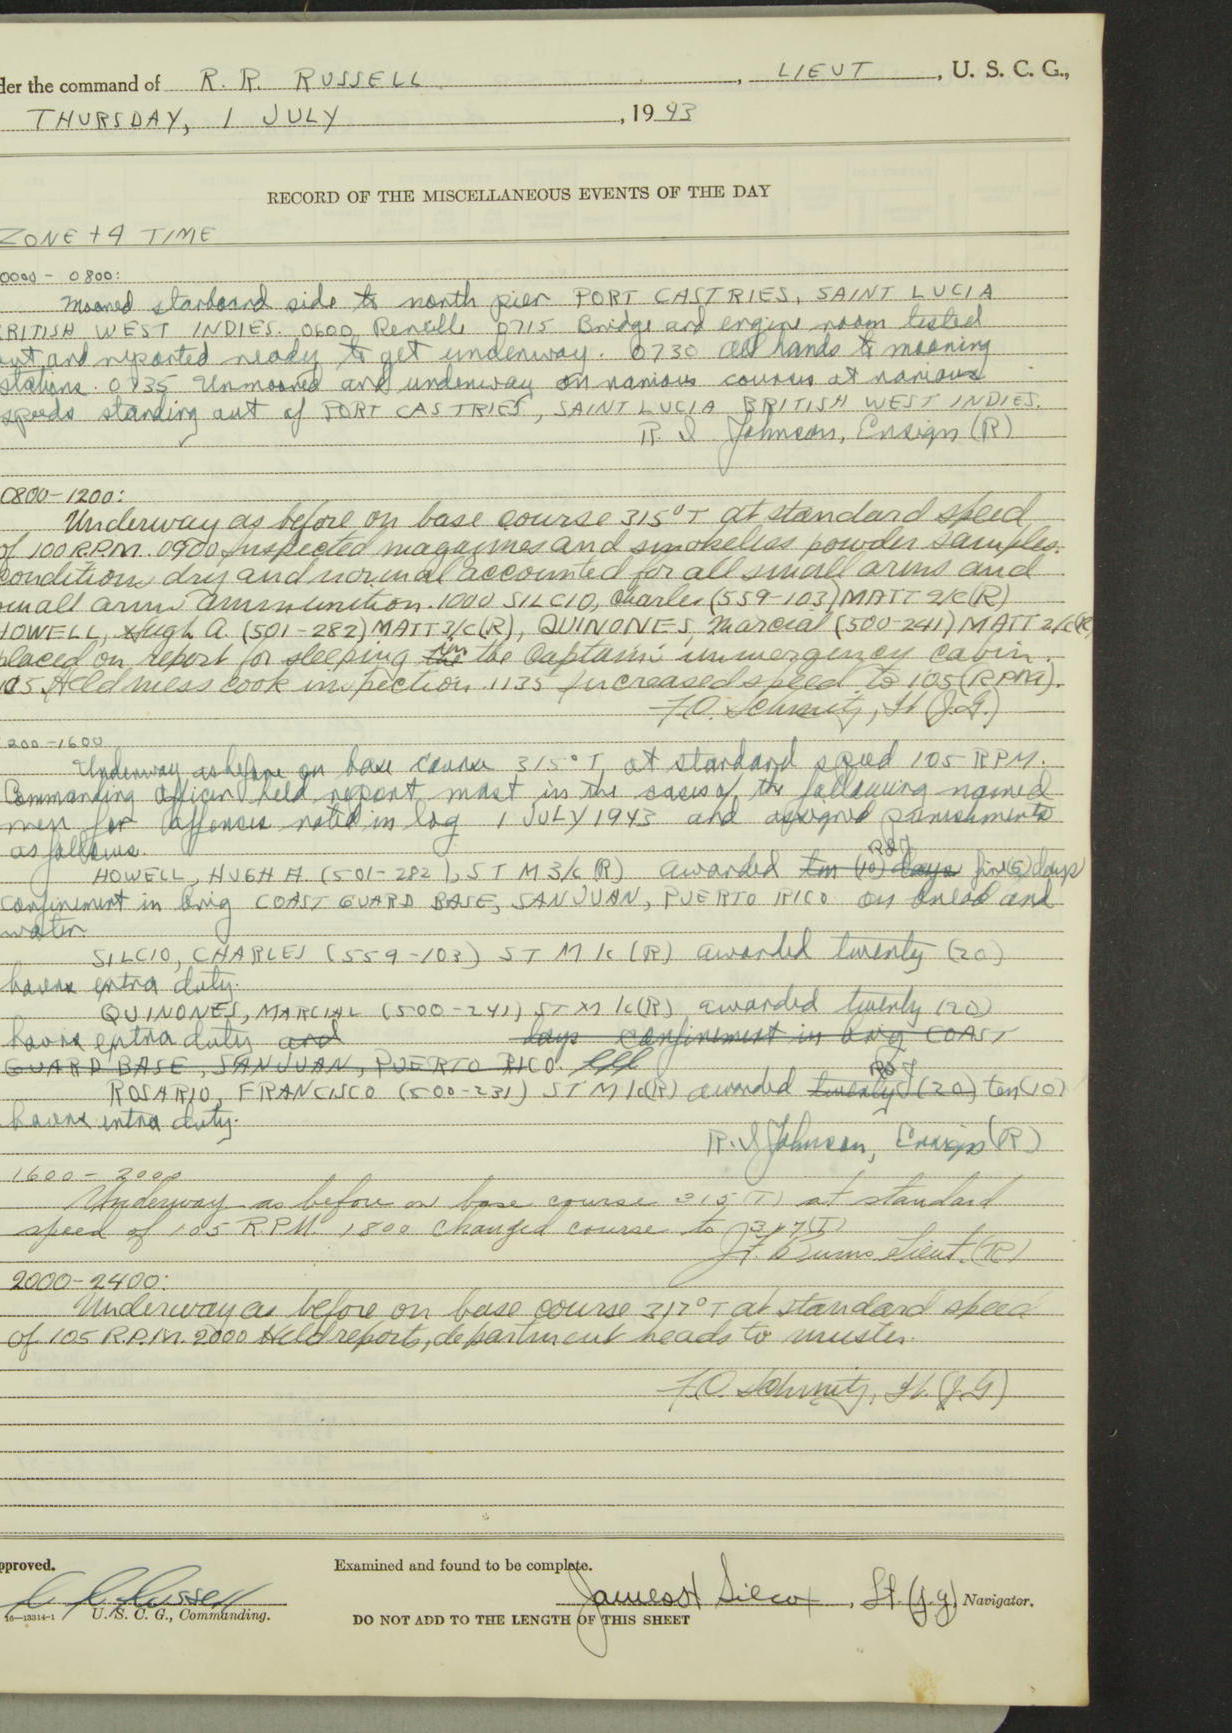 der the command of R. R. RUSSELL, LIEUT, U. S. C. G.,
THURSDAY, 1 JULY, 1943
RECORD OF THE MISCELLANEOUS EVENTS OF THE DAY
ZONE +4 TIME
0000 - 0800:
Moored starboard side to north pier PORT CASTRIES, SAINT LUCIA
BRITISH WEST INDIES. 0600 Reveille 0715 Bridge and engine room tested
out and reported ready to get underway. 0730 All hands to mooring
stations. 0735 Unmoored and underway on various courses at various
speeds standing out of PORT CASTRIES, SAINT LUCIA BRITISH WEST INDIES.
R. S Johnson, Ensign (R)
0800-1200:
Underway as before on base course 315° T at standard speed
of 100 R.P.M. 0900 Inspected magazines and smokeless powder samples.
Condition dry and normal accounted for all small arms and
small arms ammunition. 1000 SILCIO, Charles (559-103) MATT 2/c (R)
HOWELL, Hugh A. (501-282) MATT 3/c (R), QUINONES, Marcial (500-241) MATT 2/c (R)
placed on report for sleeping in the Captain's emergency cabin.
Held mess cook inspection. 1135 Increased speed to 105 (RPM).
F.O. Schmitz, Lt (J.G.)
1200-1600
Underway as before on base course 315° T, at standard speed 105 RPM.
Commanding Officer held report mast in the cases of the following named
men for offenses noted in log 1 JULY 1943 and assigned punishments
as follows.
HOWELL, HUGH A. (501-282), ST M 3/c (R) awarded ten (10) days five (5) days
confinement in brig COAST GUARD BASE, SAN JUAN, PUERTO RICO on bread and
water.
SILCIO, CHARLES (559-103) ST M 1c (R) awarded twenty (20)
hours extra duty.
QUINONES, MARCIAL (500-241) ST M 1c(R) awarded twenty (20)
hours extra duty and days confinement in brig COAST
GUARD BASE, SAN JUAN, PUERTO RICO.
ROSARIO, FRANCISCO (500-231) ST M 1c(R) awarded twenty (20) ten (10)
hours extra duty.
R. S Johnson, Ensign (R)
1600 - 2000
Underway as before on base course 315 (T) at standard
speed of 105 R.P.M. 1800 Changed course to 317 (T)
Burns Lieut. (R)
2000-2400:
Underway as before on base course 317° T at standard speed
of 105 R.P.M. 2000 Held reports, department heads to muster.
F.O. Schmitz, Lt. (J.G)
pproved. Examined and found to be complete.
R R Russell James H Silcox, Lt. (j.g) Navigator.
16-13314-1 U. S. C. G., Commanding. DO NOT ADD TO THE LENGTH OF THIS SHEET